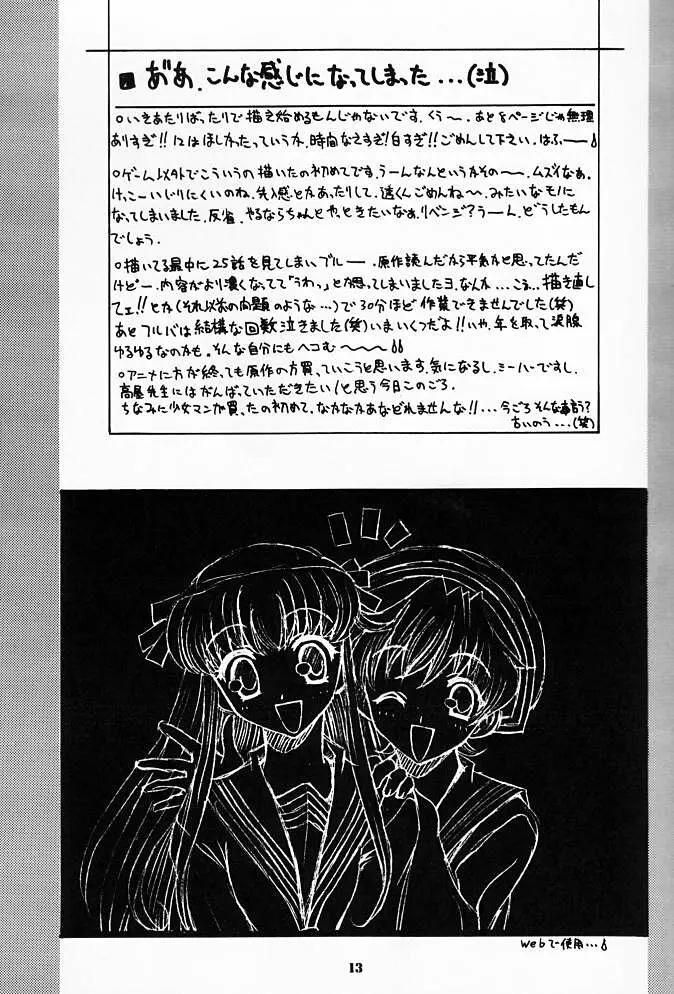 あ゛あ、こんな感じになってしまった...(泣)
○いきあたりばったりで描き始めるもんじゃないです。くぅ〜。あと8ページじゃ無理
ありすぎ!!12はほしかったっていうか、時間なさすぎ!白すぎ!!ごめんして下さい。はふぅ──
○ゲーム以外でこういうの描いたの初めてです。うーんなんというかその〜。ムズイなぁ。
けっこーいじりにくいのね。先入感とかあったりして。透くんごめんね〜。みたいなモノに
なってしまいました。反省。やるならちゃんとやっときたいなぁ。リベンジ?うーん。どうしたもん
でしょう。
○描いてる最中に25話を見てしまい、ブルー。原作読んだから平気かと思ってたんだ
けどー。内容がより濃くなってて「うわっ」とか思ってしまいましたヨ。なんか...こう...描き直し
てェ!!とか(それ以前の問題のような...)で30分ほど作業できませんでした(笑)
あとフルバは結構な回数泣きました(笑)いまいくつだよ!!いや、年を取って涙腺
ゆるゆるなのかも。そんな自分にもヘコむ〜〜〜
○アニメに方が終っても原作の方買っていこうと思います。気になるし。ミーハーですし。
高屋先生にはがんばっていただきたい!と思う今日このごろ。
ちなみに少女マンガ買ったの初めて。なかなかあなどれませんな!!...今ごろそんな事言う?
ちいのう...(笑)
Webで使用...
13